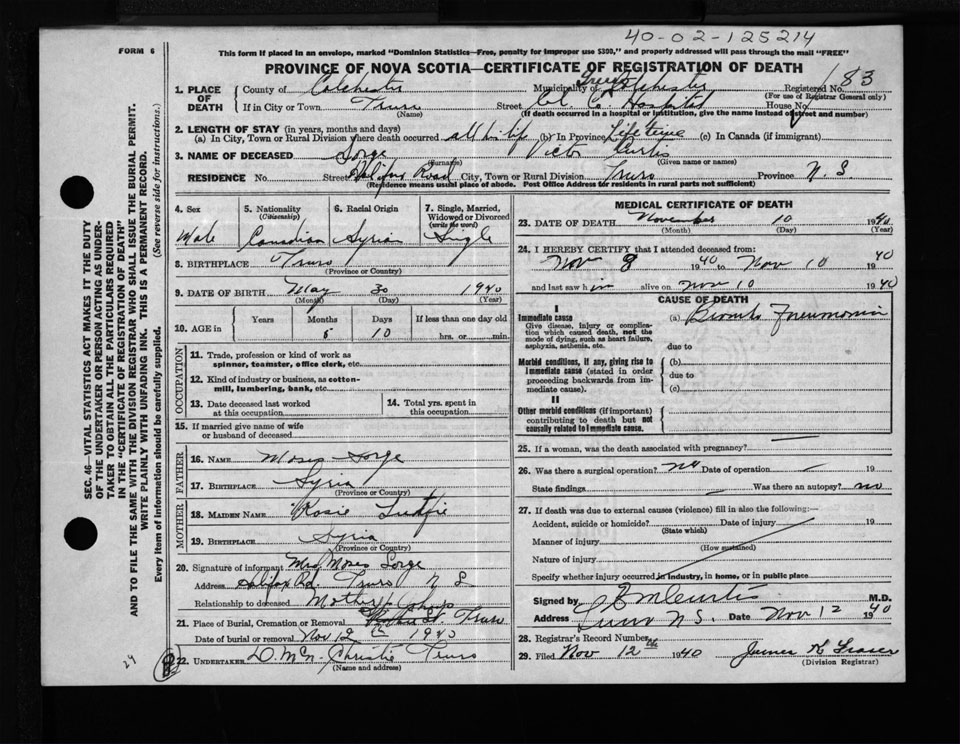 40-02-125214
FORM 6
This form if placed in an envelope, marked "Dominion Statistics—Free, penalty for improper use $300," and properly addressed will pass through the mail "FREE"
PROVINCE OF NOVA SCOTIA—CERTIFICATE OF REGISTRATION OF DEATH
1. PLACE OF DEATH
County of Colchester Municipality of Colchester Registered No. 183
(For use of Registrar General only)
If in City or Town Truro Street Col. Co. Hospital House No.
(Name) (If death occurred in a hospital or institution, give the name instead of street and number)
2. LENGTH OF STAY (in years, months and days)
(a) In City, Town or Rural Division where death occurred all his life (b) In Province Life time (c) In Canada (if immigrant)
3. NAME OF DECEASED Sorge Victor Curtis
(Surname) (Given name or names)
RESIDENCE No. Street Halifax Road City, Town or Rural Division Truro Province N S
(Residence means usual place of abode. Post Office Address for residents in rural parts not sufficient)
4. Sex Male
5. Nationality (Citizenship) Canadian
6. Racial Origin Syrian
7. Single, Married, Widowed or Divorced (write the word) Single
8. BIRTHPLACE Truro
(Province or Country)
9. DATE OF BIRTH May 30 1940
(Month) (Day) (Year)
10. AGE in Years Months Days If less than one day old
5 10 hrs. or min.
OCCUPATION
11. Trade, profession or kind of work as spinner, teamster, office clerk, etc.
12. Kind of industry or business, as cotton-mill, lumbering, bank, etc.
13. Date deceased last worked at this occupation
14. Total yrs. spent in this occupation
15. If married give name of wife or husband of deceased
FATHER
16. NAME Moses Sorge
17. BIRTHPLACE Syria
(Province or Country)
MOTHER
18. MAIDEN NAME Rosie
19. BIRTHPLACE Syria
(Province or Country)
20. Signature of informant Mrs Moses Sorge
Address Halifax Rd. Truro N S
Relationship to deceased Mother
21. Place of Burial, Cremation or Removal St. Truro
Date of burial or removal Nov 12th 1940
22. UNDERTAKER D. McN. Christie Truro
(Name and address)
MEDICAL CERTIFICATE OF DEATH
23. DATE OF DEATH November 10 1940
(Month) (Day) (Year)
24. I HEREBY CERTIFY that I attended deceased from:
Nov 8 1940 to Nov 10 1940
and last saw him alive on Nov 10 1940
CAUSE OF DEATH
I
Immediate cause
Give disease, injury or complication which caused death, not the mode of dying, such as heart failure, asphyxia, asthenia, etc.
(a) Broncho Pneumonia
due to
Morbid conditions, if any, giving rise to immediate cause (stated in order proceeding backwards from immediate cause).
(b)
due to
(c)
II
Other morbid conditions (if important) contributing to death but not causally related to immediate cause.
25. If a woman, was the death associated with pregnancy? —
26. Was there a surgical operation? no Date of operation — 19
State findings — Was there an autopsy? no
27. If death was due to external causes (violence) fill in also the following:—
Accident, suicide or homicide? Date of injury 19
(State which)
Manner of injury
(How sustained)
Nature of injury
Specify whether injury occurred in industry, in home, or in public place
Signed by Curtis M.D.
Address Truro N.S. Date Nov 12 1940
28. Registrar's Record Number
29. Filed Nov 12th 1940 James K Fraser
(Division Registrar)
SEC. 46—VITAL STATISTICS ACT MAKES IT THE DUTY
OF THE UNDERTAKER OR PERSON ACTING AS UNDER-
TAKER TO OBTAIN ALL THE PARTICULARS REQUIRED
IN THE "CERTIFICATE OF REGISTRATION OF DEATH"
AND TO FILE THE SAME WITH THE DIVISION REGISTRAR WHO SHALL ISSUE THE BURIAL PERMIT.
WRITE PLAINLY WITH UNFADING INK. THIS IS A PERMANENT RECORD.
Every item of information should be carefully supplied. (See reverse side for instructions.)
29